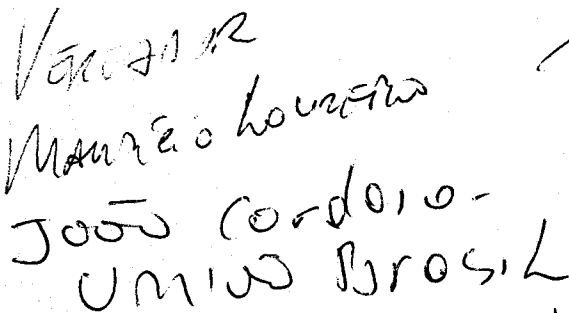 VEREADOR
MAURÍCIO LOUREIRO
JOÃO CORDEIRO-
UNIÃO BRASIL